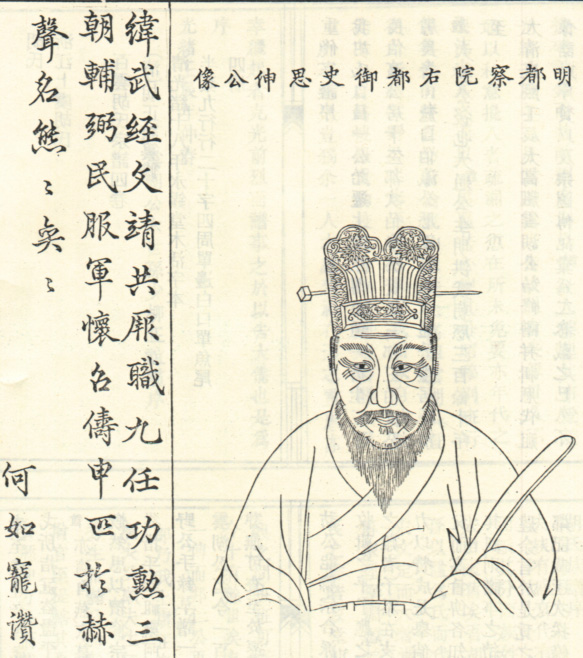 明都察院右都御史思伸公像
緯武經文靖共厥職九任功勳三
朝輔弼民服軍懷召儔申匹於赫
聲名熊〻奐〻
何如寵讚